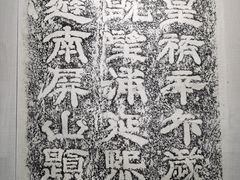 皇祐辛卯歲
望浦延熙
南屏山題